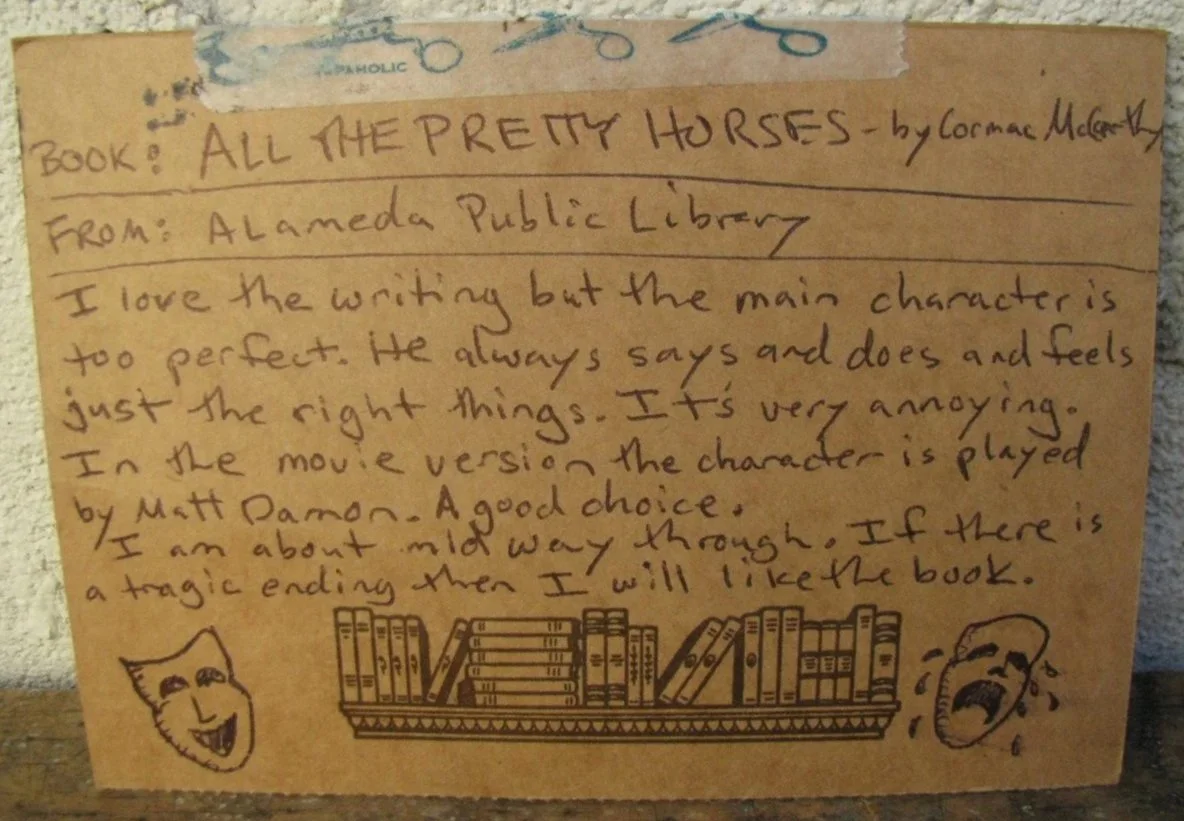 PAHOLIC
BOOK: ALL THE PRETTY HORSES - by Cormac McCarthy
FROM: ALameda Public Library
I love the writing but the main character is
too perfect. He always says and does and feels
just the right things. It's very annoying.
In the movie version the character is played
by Matt Damon. A good choice.
I am about mid way through. If there is
a tragic ending then I will like the book.